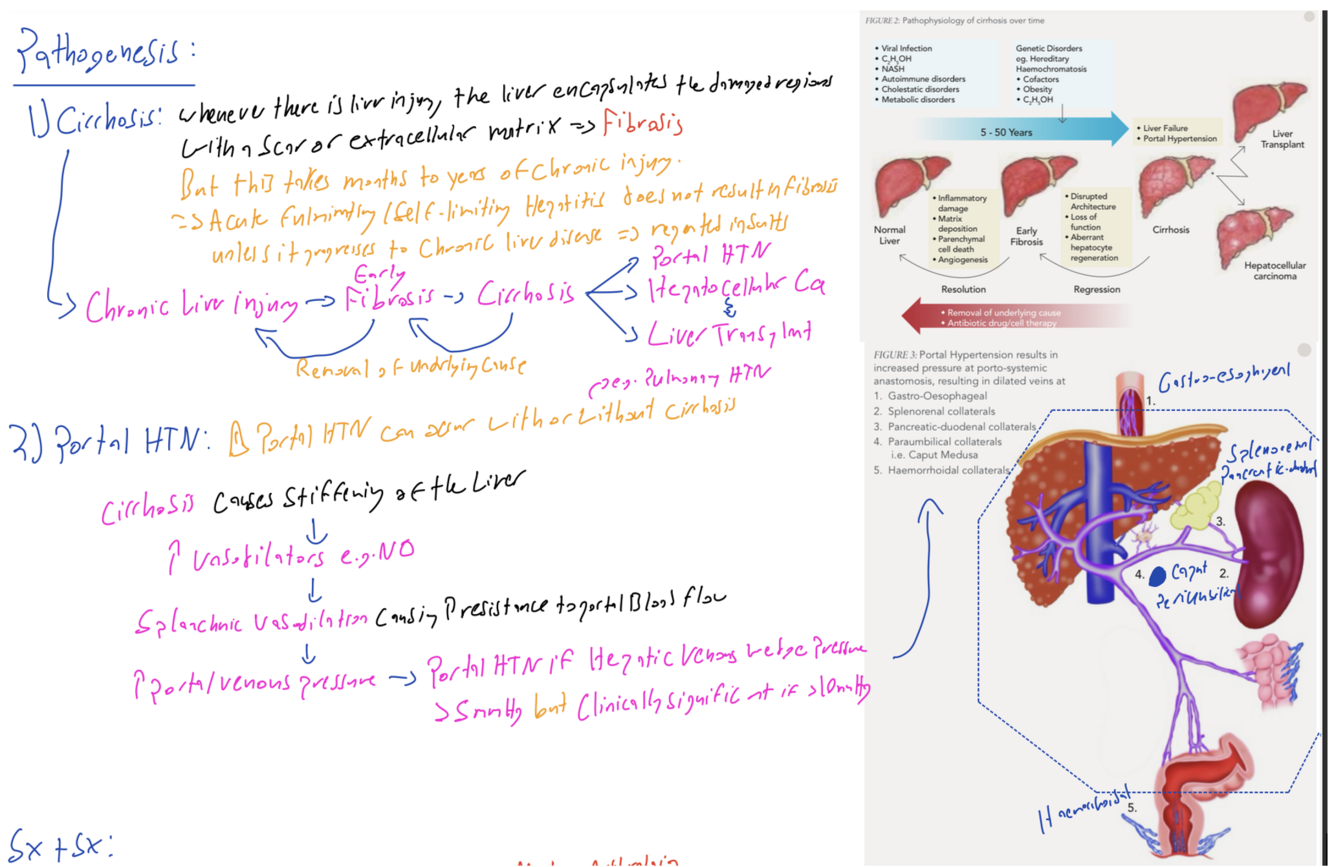 Pathogenesis:
1) Cirrhosis: whenever there is liver injury, the liver encapsulates the damaged regions
with a scar or extracellular matrix => Fibrosis
But this takes months to years of chronic injury.
=> Acute Fulminating/Self-limiting Hepatitis does not result in fibrosis
unless it progresses to chronic liver disease => repeated insults
Chronic liver injury → Early Fibrosis → Cirrhosis
Portal HTN
Hepatocellular Ca
Liver Transplant
Removal of underlying cause
e.g. Pulmonary HTN
2) Portal HTN: Portal HTN can occur with or without cirrhosis
Cirrhosis causes stiffening of the liver
↓
↑ Vasodilators e.g. NO
↓
Splanchnic vasodilation causing ↑ resistance to portal Blood flow
↓
↑ portal venous pressure → Portal HTN if Hepatic Venous wedge Pressure
>5mmHg but Clinically significant if >10mmHg
Sx + Sx:
FIGURE 2: Pathophysiology of cirrhosis over time
• Viral Infection
• C₂H₅OH
• NASH
• Autoimmune disorders
• Cholestatic disorders
• Metabolic disorders
Genetic Disorders
eg. Hereditary
Haemochromatosis
• Cofactors
• Obesity
• C₂H₅OH
5 - 50 Years
• Liver Failure
• Portal Hypertension
Liver
Transplant
Normal
Liver
• Inflammatory
damage
• Matrix
deposition
• Parenchymal
cell death
• Angiogenesis
Early
Fibrosis
• Disrupted
Architecture
• Loss of
function
• Aberrant
hepatocyte
regeneration
Cirrhosis
Hepatocellular
carcinoma
Resolution
Regression
• Removal of underlying cause
• Antibiotic drug/cell therapy
FIGURE 3: Portal Hypertension results in
increased pressure at porto-systemic
anastomosis, resulting in dilated veins at
1. Gastro-Oesophageal
2. Splenorenal collaterals
3. Pancreatic-duodenal collaterals
4. Paraumbilical collaterals
i.e. Caput Medusa
5. Haemorrhoidal collaterals
Gastro-esophageal
1.
Splenorenal
Pancreatic-duodenal
3.
4.
Caput
2.
Periumbilical
Haemorrhoidal
5.